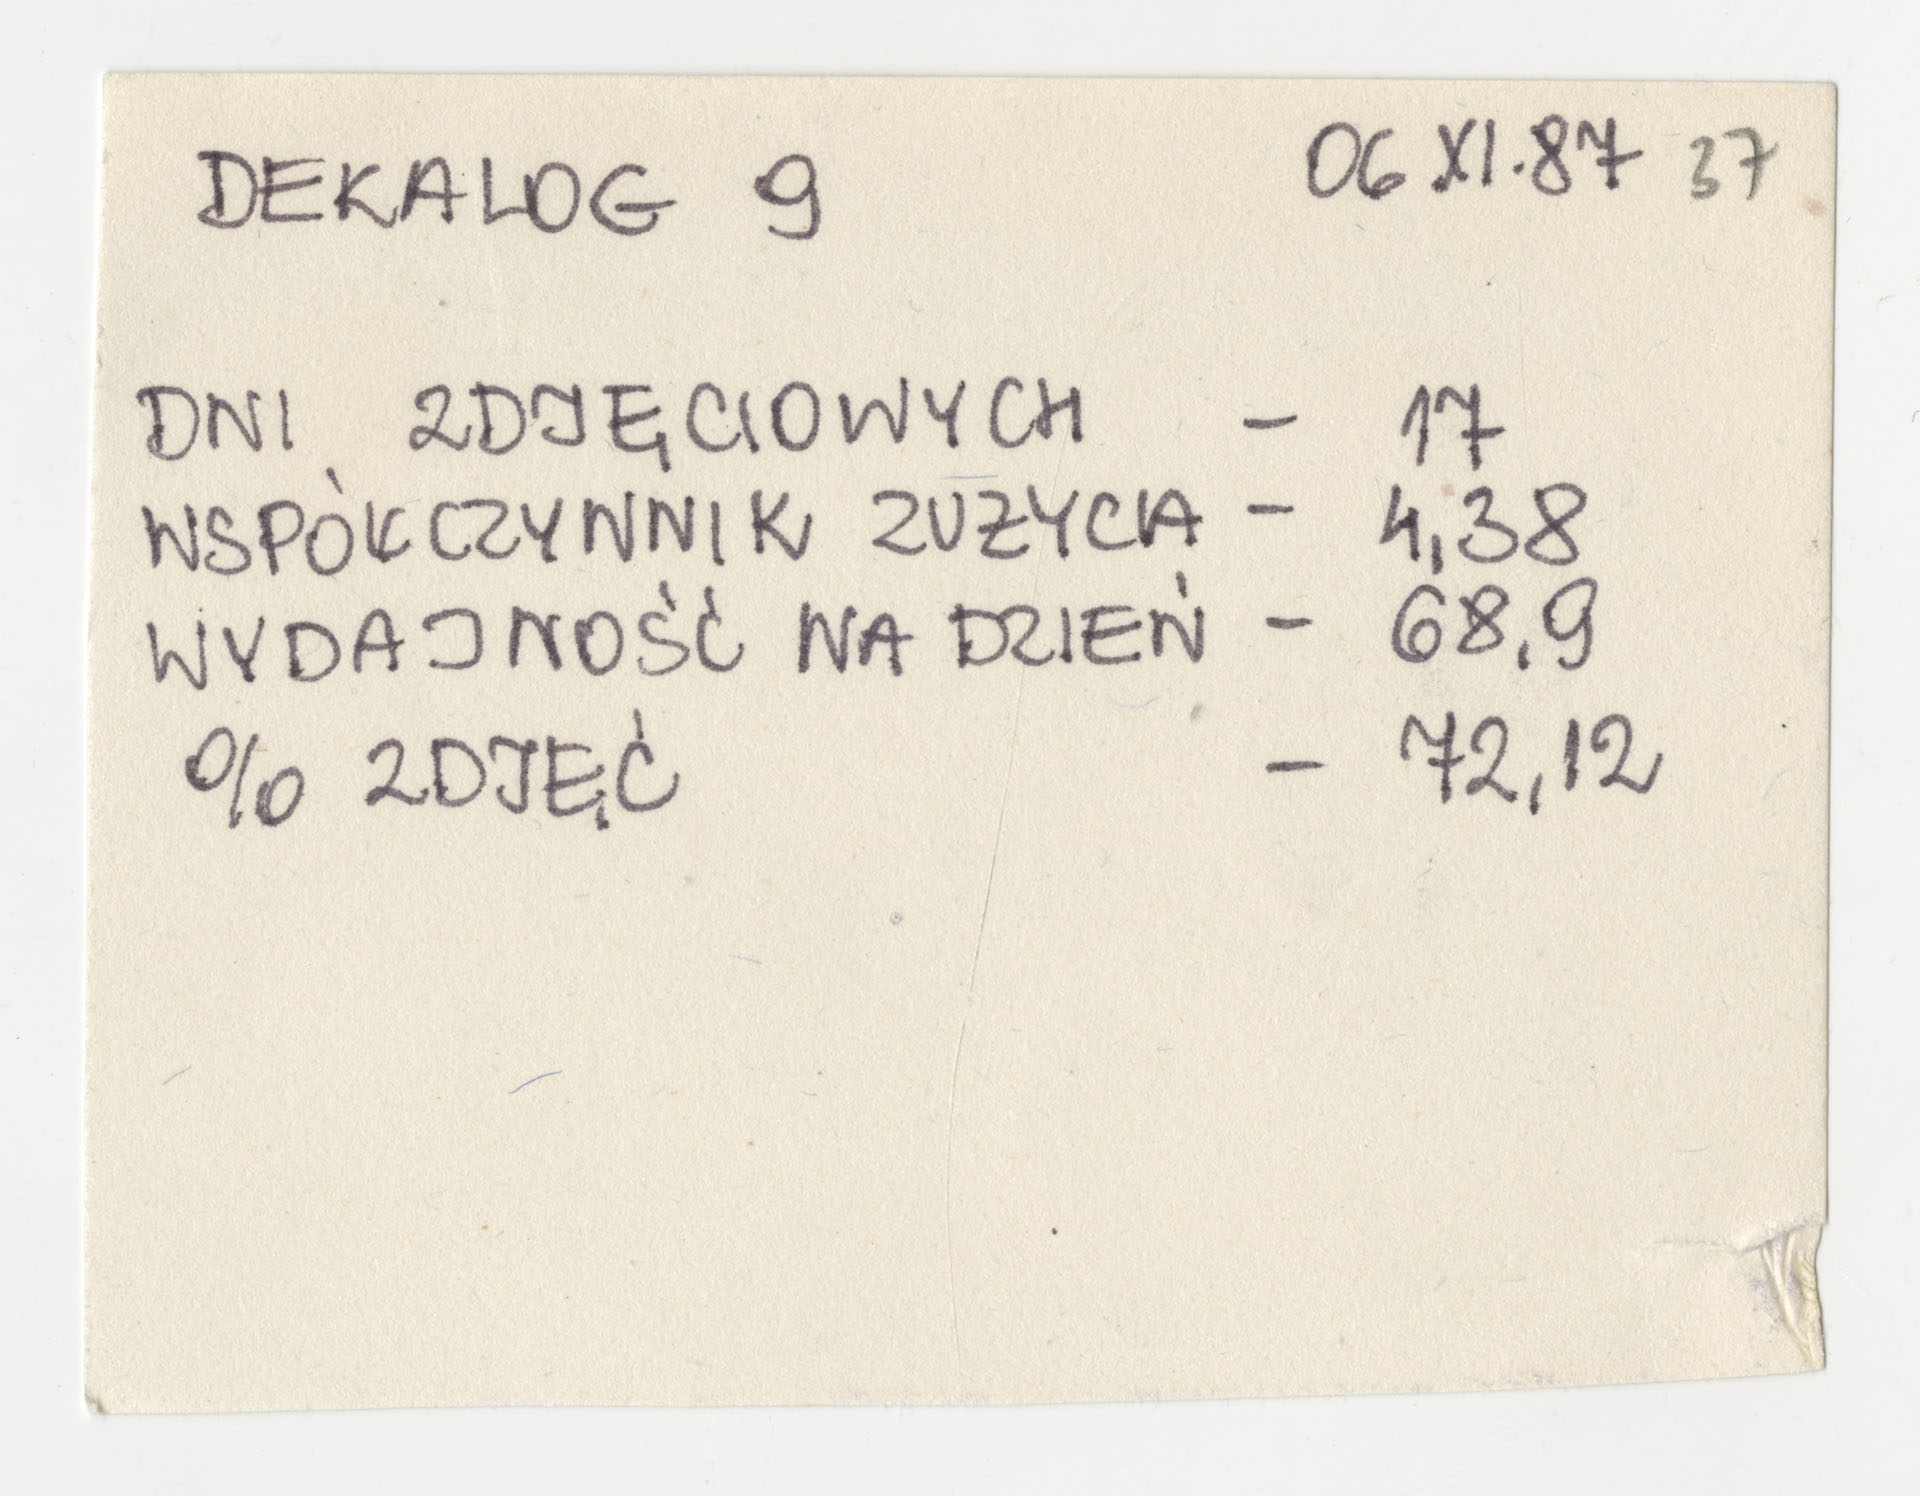 DEKALOG 9 06 XI.87 37
DNI ZDJĘCIOWYCH - 17
WSPÓŁCZYNNIK ZUŻYCIA - 4,38
WYDAJNOŚĆ NA DZIEŃ - 68,9
% ZDJĘĆ - 72,12